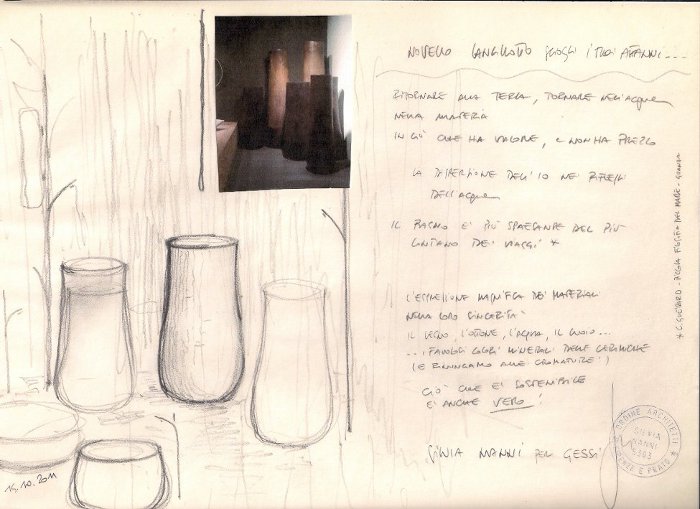 NOVELLO LANCILLOTTO SCIOGLI I TUOI AFFANNI...
RITORNARE ALLA TERRA, TORNARE NELL'ACQUA
NELLA MATERIA
IN CIÒ CHE HA VALORE, E NON HA PREZZO
LA DISPERSIONE DELL'IO NEI RIFLESSI
DELL'ACQUA
IL BAGNO E' PIÙ SPAESANTE DEL PIÙ
LONTANO DEI VIAGGI *
L'ESPRESSIONE MAGNIFICA DEI MATERIALI
NELLA LORO SINCERITÀ
IL LEGNO, L'OTTONE, L'ACQUA, IL CUOIO...
... I FAVOLOSI COLORI MINERALI DELLE CERAMICHE
(E RINUNCIAMO ALLE CROMATURE!)
CIÒ CHE E' SOSTENIBILE
E' ANCHE VERO!
SILVIA NANNI PER GESSI
* C. GUEVARD - PICCOLA FILOSOFIA DEL MARE - GUANDA
14.10.2011
ORDINE ARCHITETTI
SILVIA
NANNI
6303
E PRATO